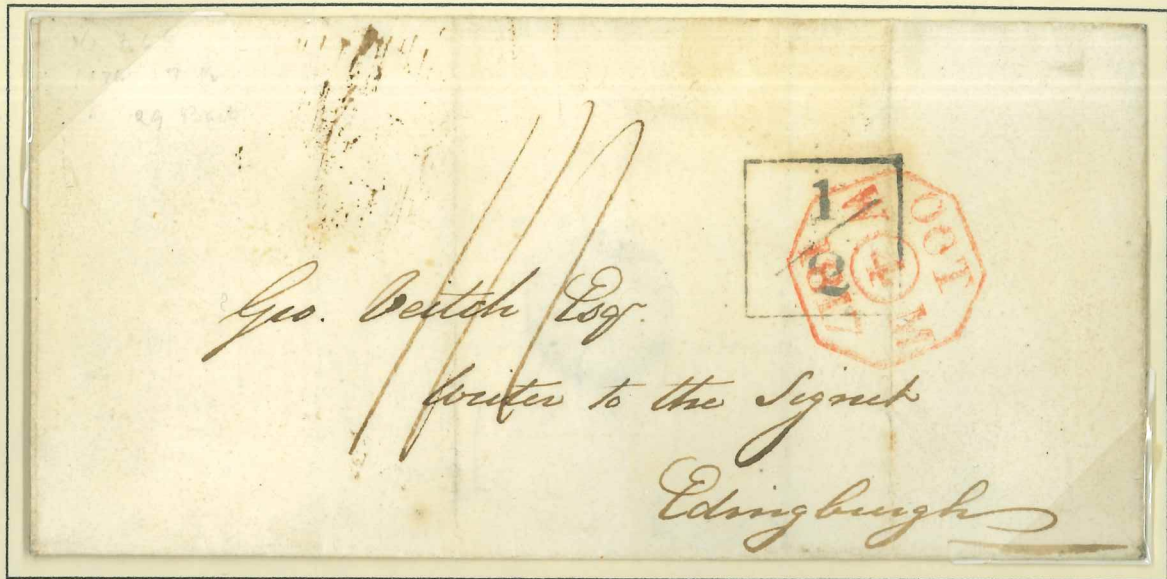 1
2
OCT
W
M
Geo. Veitch Esqr.
Writer to the Signet
Edingburgh